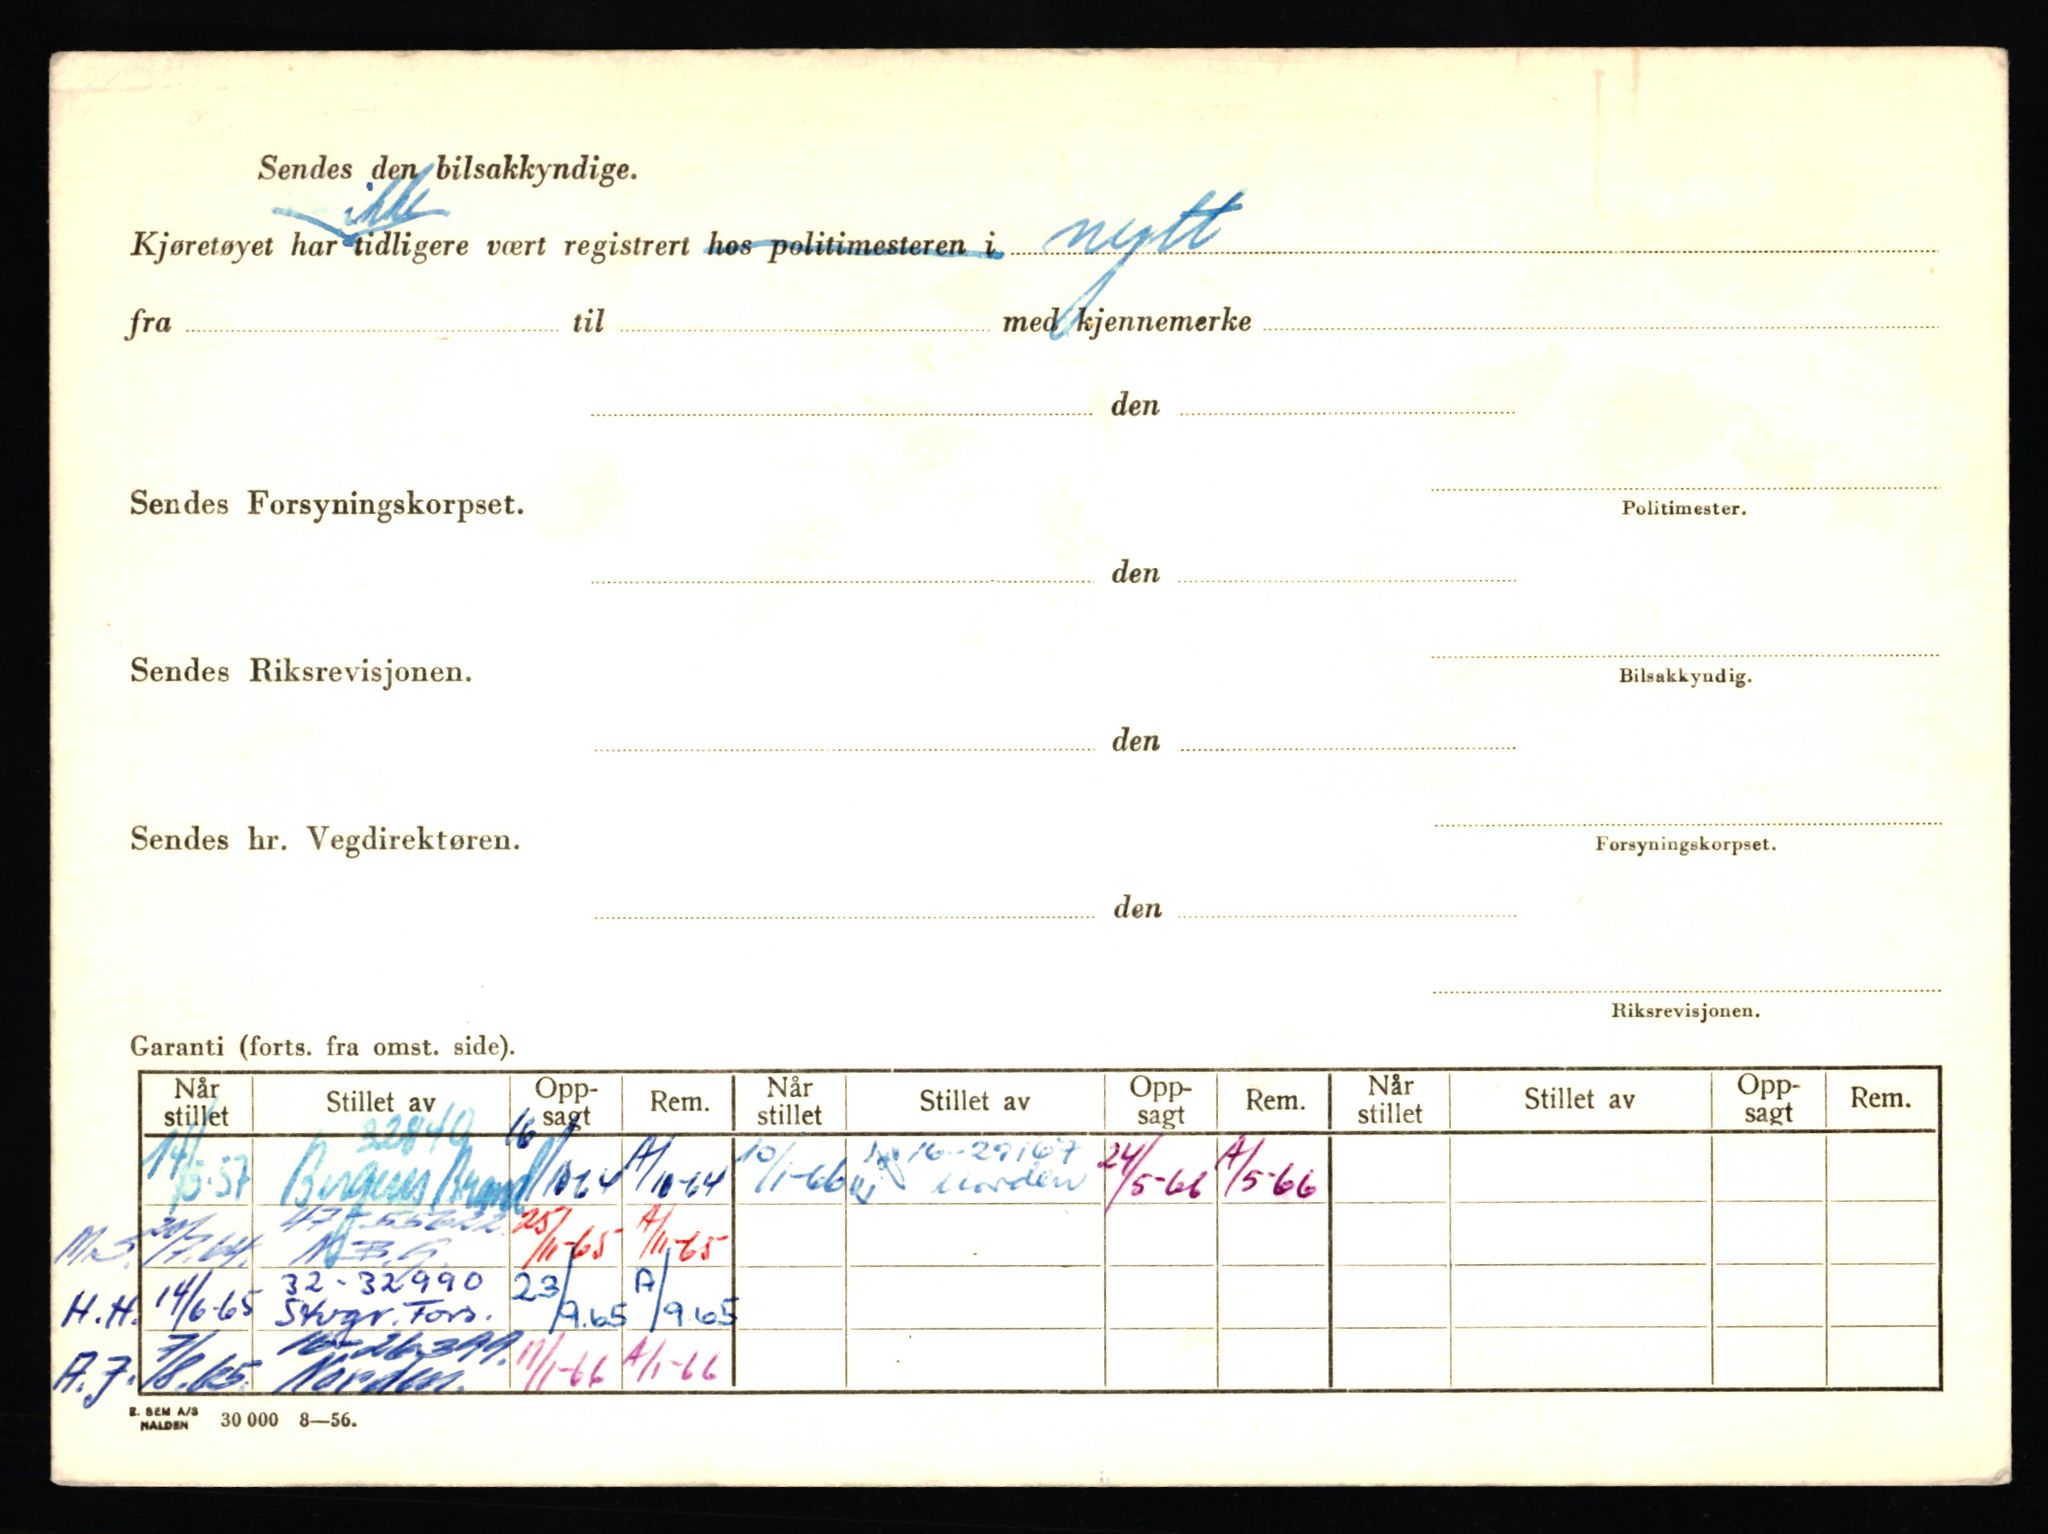 Sendes den bilsakkyndige.
ikke
Kjøretøyet har tidligere vært registrert hos politimesteren i nytt
fra til med kjennemerke
den
Sendes Forsyningskorpset.
Politimester.
den
Sendes Riksrevisjonen.
Bilsakkyndig.
den
Sendes hr. Vegdirektøren.
Forsyningskorpset.
den
Riksrevisjonen.
Garanti (forts. fra omst. side).
Når stillet Stillet av Opp-sagt Rem. Når stillet Stillet av Opp-sagt Rem. Når stillet Stillet av Opp-sagt Rem.
32840 16-29167
14/5-57 Bergens Brand 16/10-64 A/10-64 10/1-66 Norden 24/5-66 A/5-66
M.S. 20/7.64. 47-55622 25/11-65 A/11-65
H.H. 14/6-65 32-32990 23/9.65 A/9.65
Stvgr. Fors.
A.J. 7/8.65. 16-26399. 11/1-66 A/1-66
Norden.
E. SEM A/S
HALDEN 30 000 8—56.